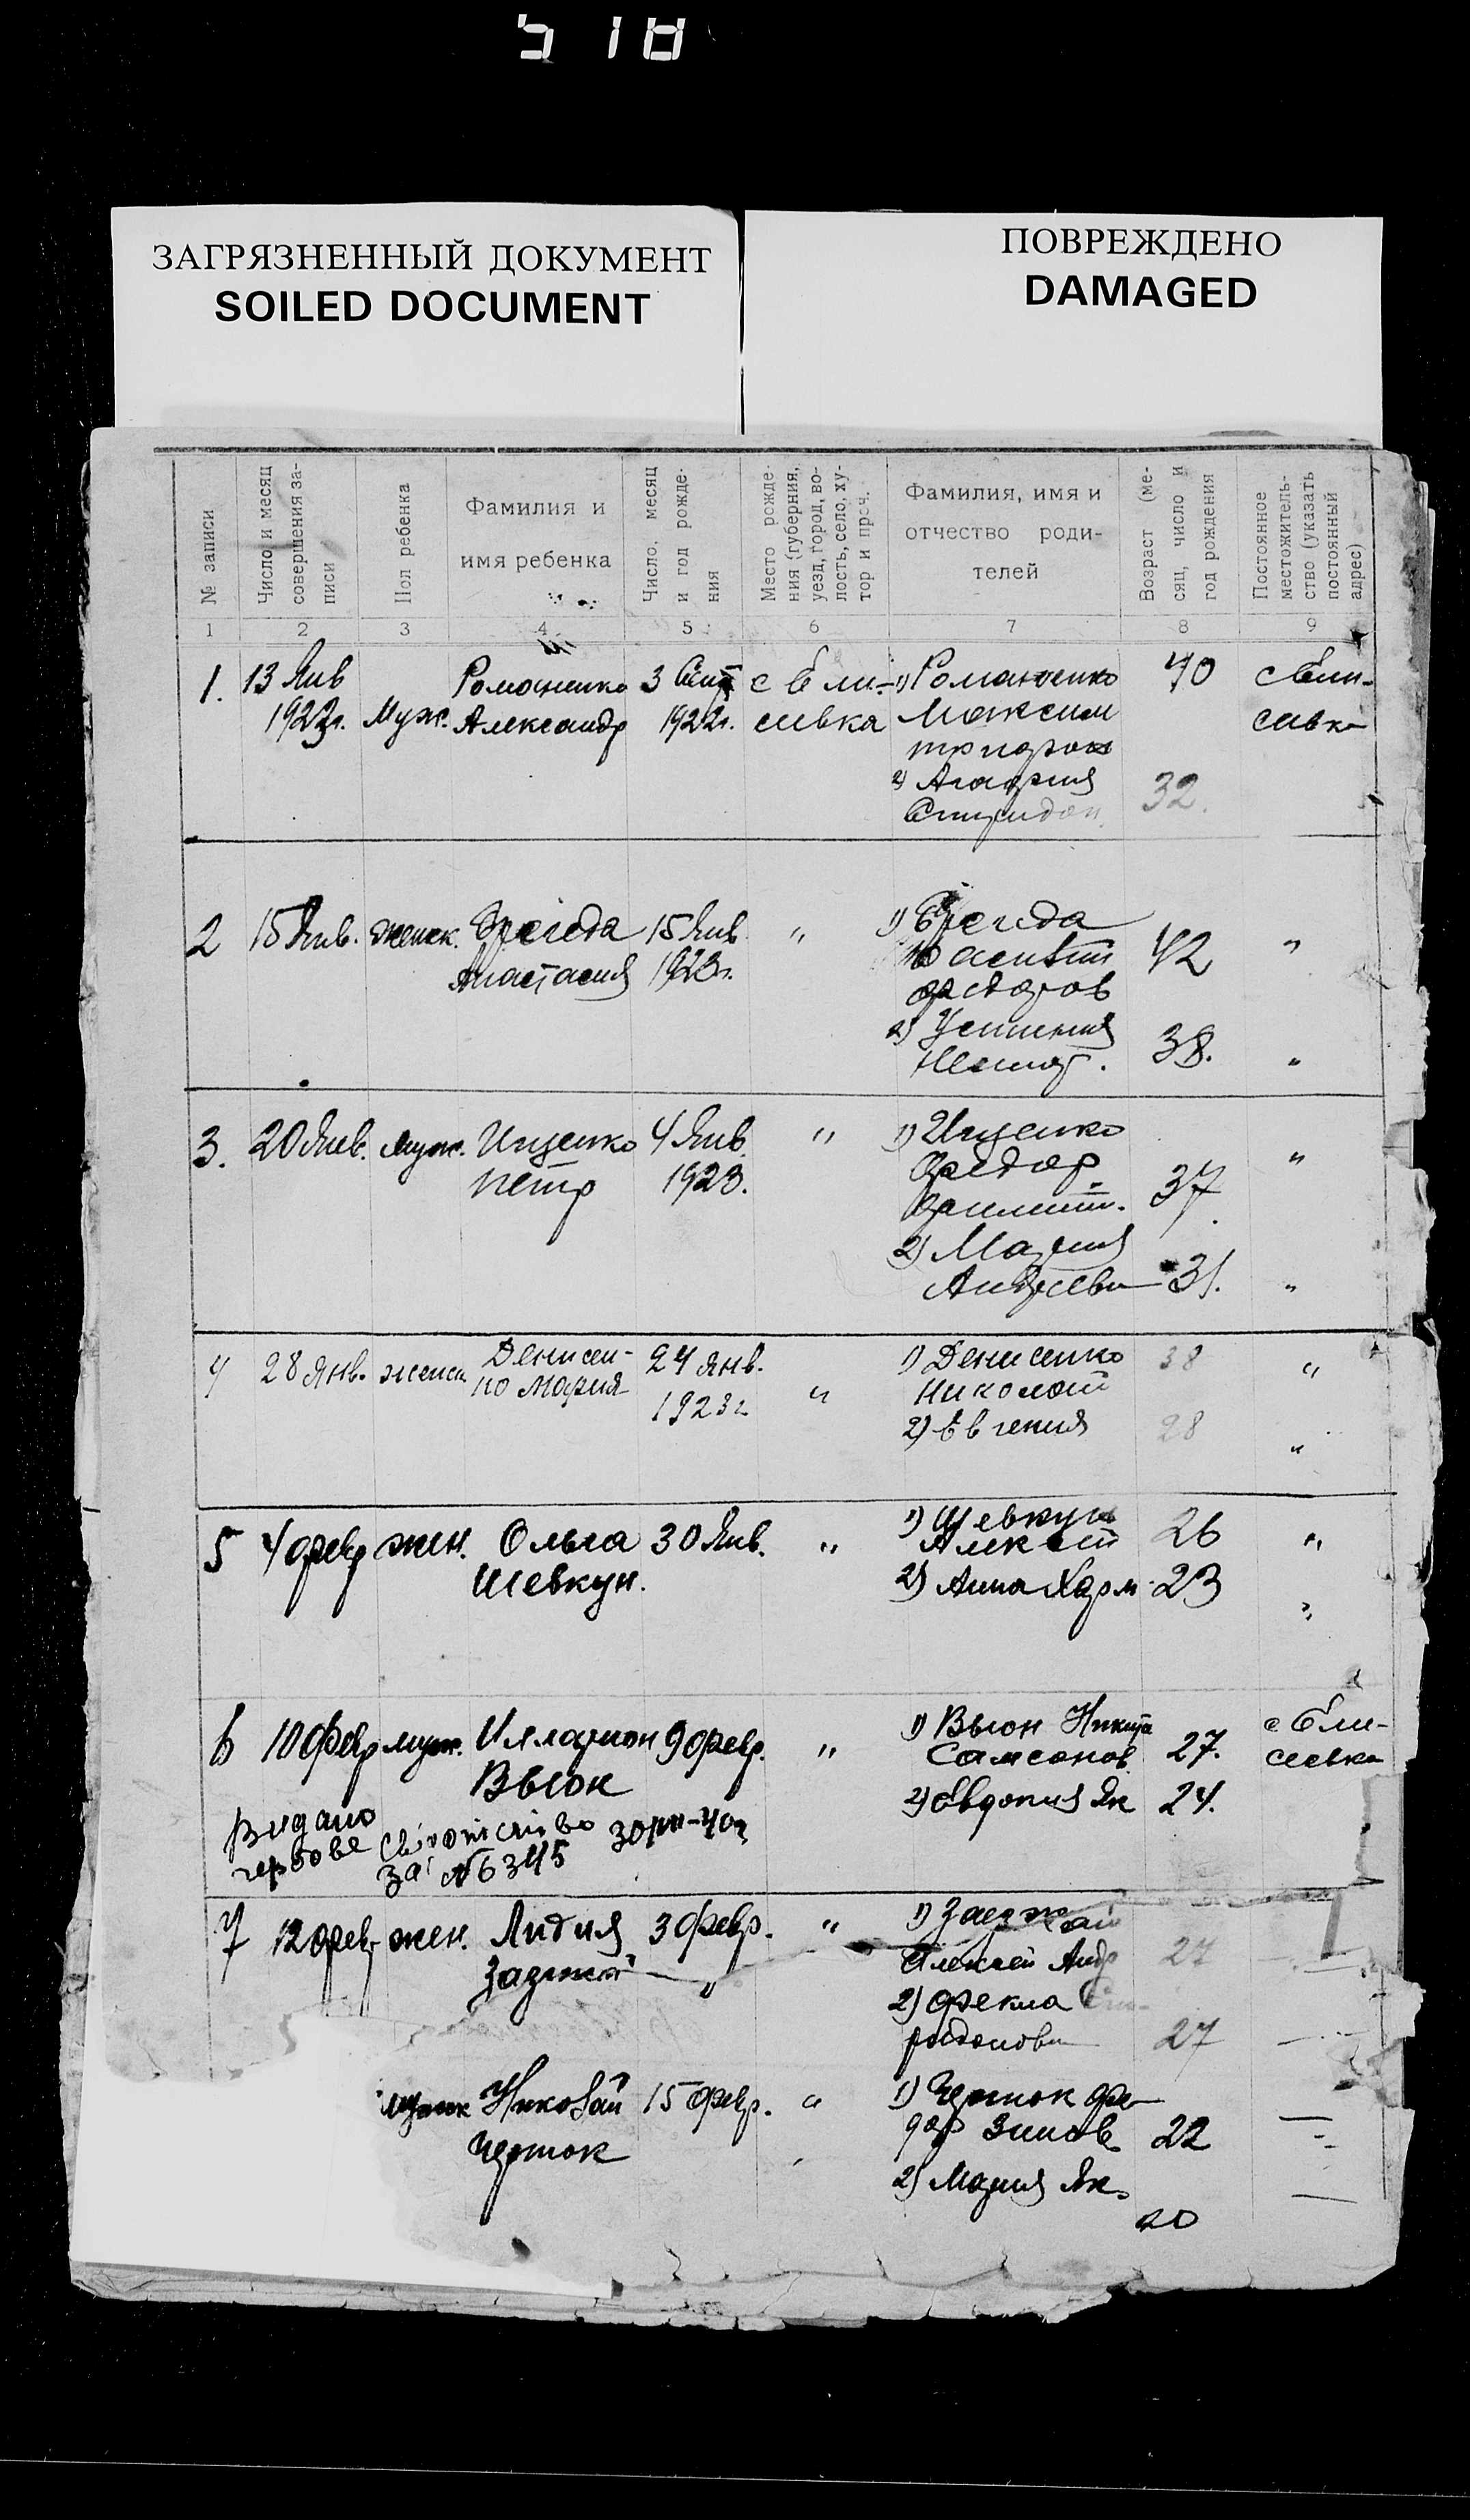 518
ЗАГРЯЗНЕННЫЙ ДОКУМЕНТ
SOILED DOCUMENT
ПОВРЕЖДЕНО
DAMAGED
№ записи
Число и месяц
совершения за-
писи
Пол ребенка
Фамилия и
имя ребенка
Число, месяц
и год рожде-
ния
Место рожде-
ния (губерния,
уезд, город, во-
лость, село, ху-
тор и проч.
Фамилия, имя и
отчество роди-
телей
Возраст (ме-
сяц, число и
год рождения
Постоянное
местожитель-
ство (указать
постоянный
адрес)
1 2 3 4 5 6 7 8 9
1. 13 Янв Романенко 3 с Ели- 1) Романенко 40 с Ели-
1923г. Муж. Александр 1922г. сивка Максим сивка
2) Агафия 32.
Спиридон.
2 15 Янв. женск. 15 Янв. " 1)
Анастасия 1923г. 42 "
федоров
2) Устиния
38. "
3. 20 Янв. муж. Ищенко 4 Янв. " 1) Ищенко "
Петр 1923. Федор
37
2) Мария
Андреевн 31. "
4 28 Янв. женск Денисен- 24 янв. 1) Денисенко 38 "
ко Мария 1923г " Николай
2) Евгения 28 "
5 4 февр жен. Ольга 30 Янв. " 1) Шевкун 26 "
Шевкун. Алексей
2) Анна Харм. 23 "
6 10 февр муж. Илларион 9 февр. " 1) Вьюн Никита 27. с Ели-
Вьюн Самсонов сивка
2) Евдокия Як 24.
Видано свідоцтво
за № 6345
7 12 февр жен. Лидия 3 февр. " 1)
Алексей Андр 27
2) Фекла
27
Николай 15 февр. " 1) Черток Фе-
Черток дор Зинов 22
2) Мария Як.
20